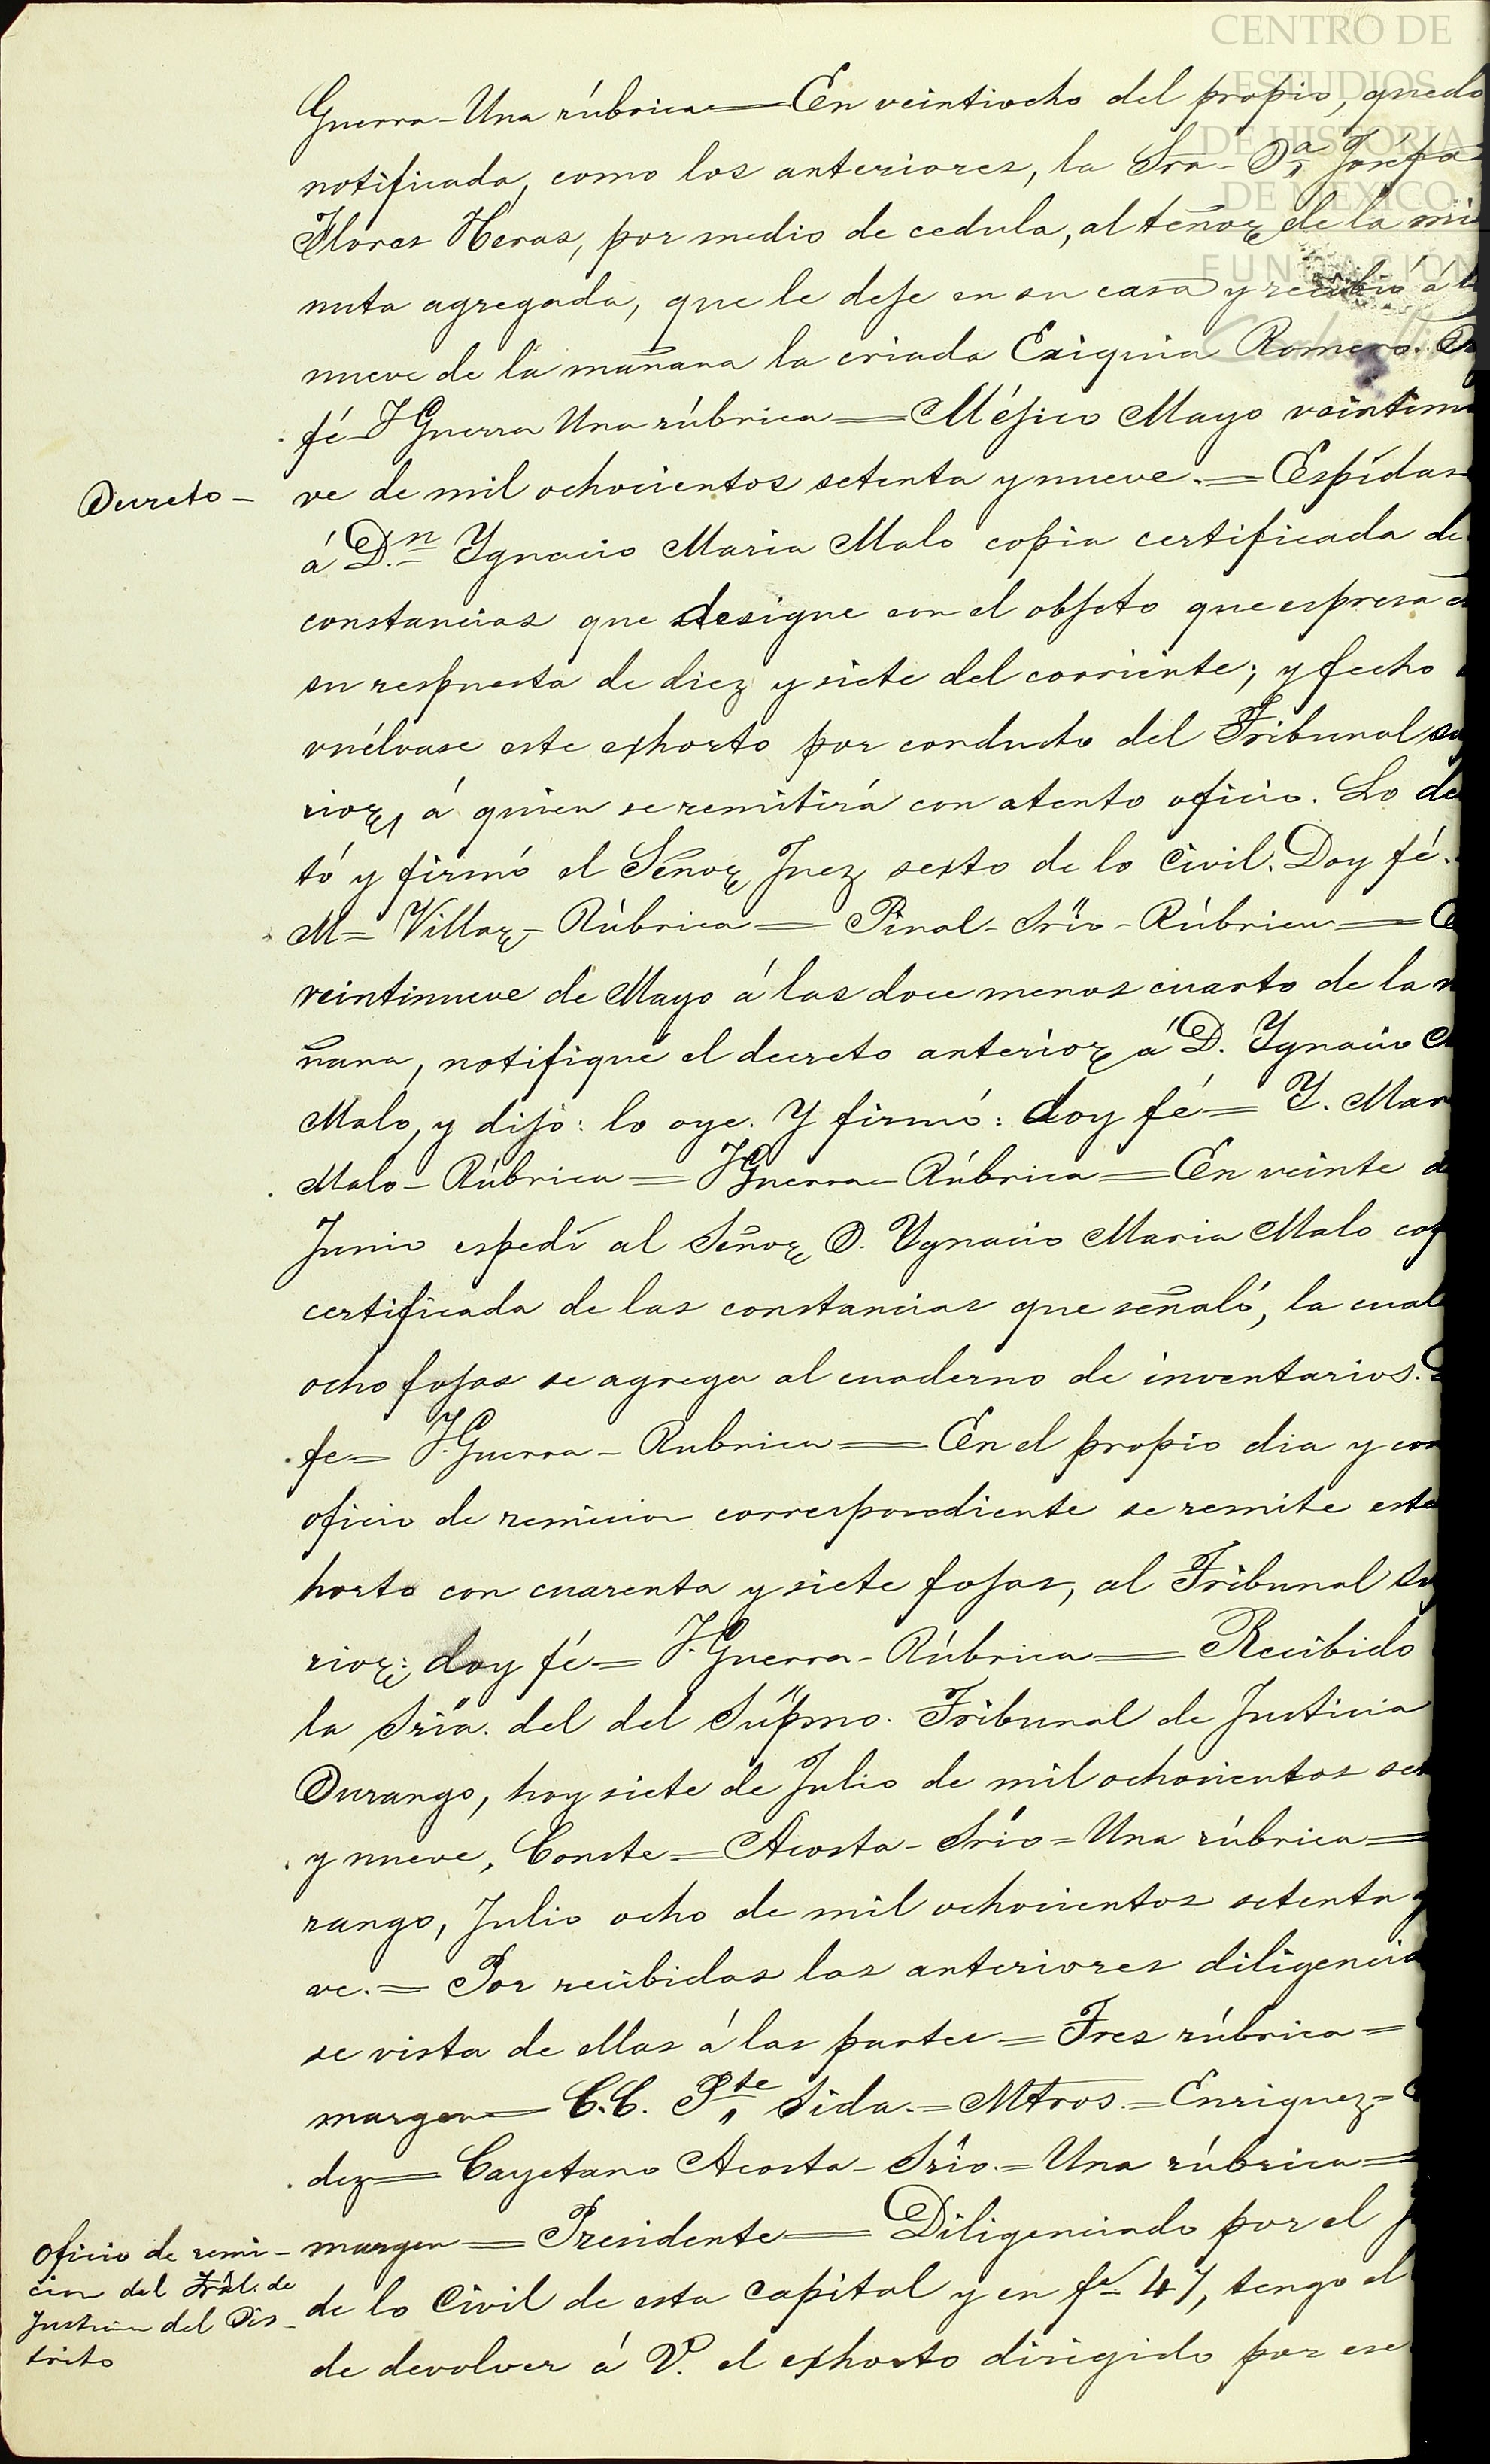 CENTRO DE
ESTUDIOS
DE HISTORIA
DE MEXICO
FUNDACIÓN
Guerra - Una rúbrica = En veintiocho del propio, quedo
notificada, como los anteriores, la Sra. Dª Josefa
Flores Heras, por medio de cedula, al tenor de la mi
nuta agregada, que le deje en su casa y recibió á l
nueve de la mañana la criada Exiquia Romero.
fé - J Guerra Una rúbrica = Méjico Mayo veintinu
Decreto -
ve de mil ochocientos setenta y nueve. = Espídas
á D.n Ygnacio Maria Malo copia certificada de
constancias que designe con el objeto que espresa e
su respuesta de diez y siete del corriente; y fecho
vuélvase este exhorto por conducto del Tribunal su
rior, á quien se remitirá con atento oficio. Lo de
tó y firmó el Señor Juez sexto de lo Civil. Doy fé.
M = Villar - Rúbrica = Pinal - Srio - Rúbrica =
veintinueve de Mayo á las doce menos cuarto de la m
ñana, notifiqué el decreto anterior á D. Ygnacio M
Malo, y dijo: lo oye. Y firmó: doy fé = Y. Mar
Malo - Rúbrica = J Guerra - Rúbrica = En veinte d
Junio espedí al Señor D. Ygnacio Maria Malo cop
certificada de las constancias que señaló, la cual
ocho fojas se agrega al cuaderno de inventarios.
fe = J. Guerra - Rubrica = En el propio dia y con
oficio de remicion correspondiente se remite este
horto con cuarenta y siete fojas, al Tribunal Su
rior: doy fé = J. Guerra - Rúbrica = Recibido
la Sría. del del Súpmo. Tribunal de Justicia
Durango, hoy siete de Julio de mil ochocientos set
y nueve, Conste = Acosta - Srio = Una rúbrica =
rango, Julio ocho de mil ochocientos setenta y
ve. = Por recibidas las anteriores diligencia
se vista de ellas á las partes = Tres rúbrica =
margen = C.C. Pte Sida. = Mtros. = Enriquez =
dez = Cayetano Acosta - Srio. = Una rúbrica =
margen = Presidente = Diligenciado por el J
Oficio de remi-
cion del Tral. de
Justicia del Dis-
trito
de lo Civil de esta Capital y en fs 47, tengo el
de devolver á V. el exhorto dirigido por ese